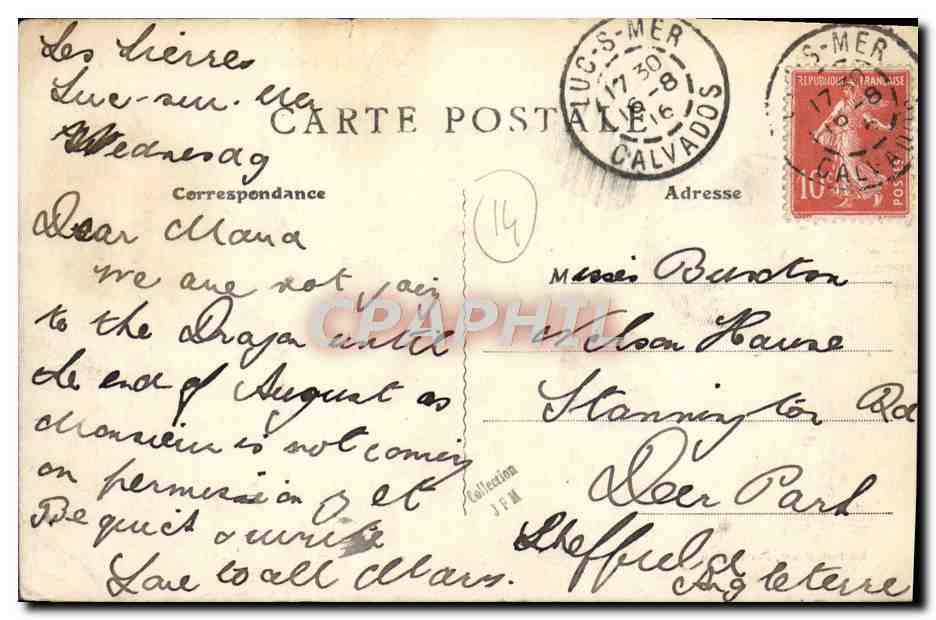 Les Lierres
Luc-sur-Mer
Wednesday
CARTE POSTALE
Correspondance
Dear Maud
We are not going
to the Dragon until
the end of August as
Monsieur is not coming
on permission yet
Be quick & write
Love to all
14
LUC-S-MER
17 30
16-8
16
CALVADOS
S-MER
17 30
16-8
CALVADOS
REPUBLIQUE FRANÇAISE
10
POSTES
Adresse
Misses Buxton
Nelson House
Stannington Rd
Deer Park
Sheffield
Angleterre
Collection
JFM
CPAPHIL